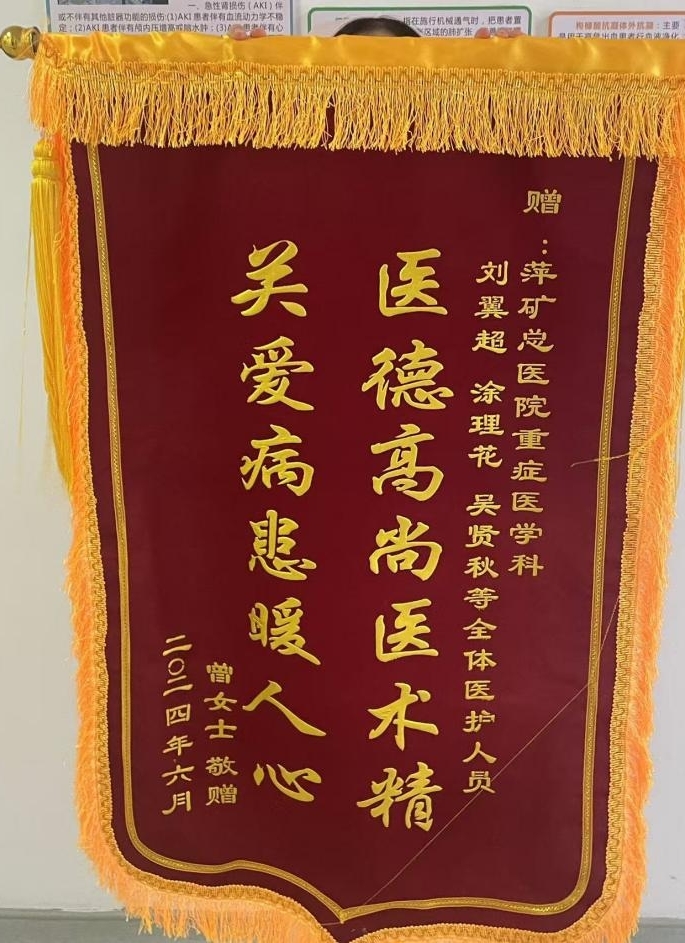 一、急性肾损伤（AKI）伴
或不伴有其他脏器功能的损伤:(1)AKI患者伴有血流动力学不稳
定；(2)AKI患者伴有颅内压增高或脑水肿；(3)AKI患者伴有心
指在施行机械通气时，把患者置
区域的肺扩张
枸橼酸抗凝体外抗凝：主要
赠：
萍矿总医院重症医学科
刘翼超 涂理花 吴贤秋等全体医护人员
医德高尚医术精
关爱病患暖人心
曾女士 敬赠
二〇二四年六月